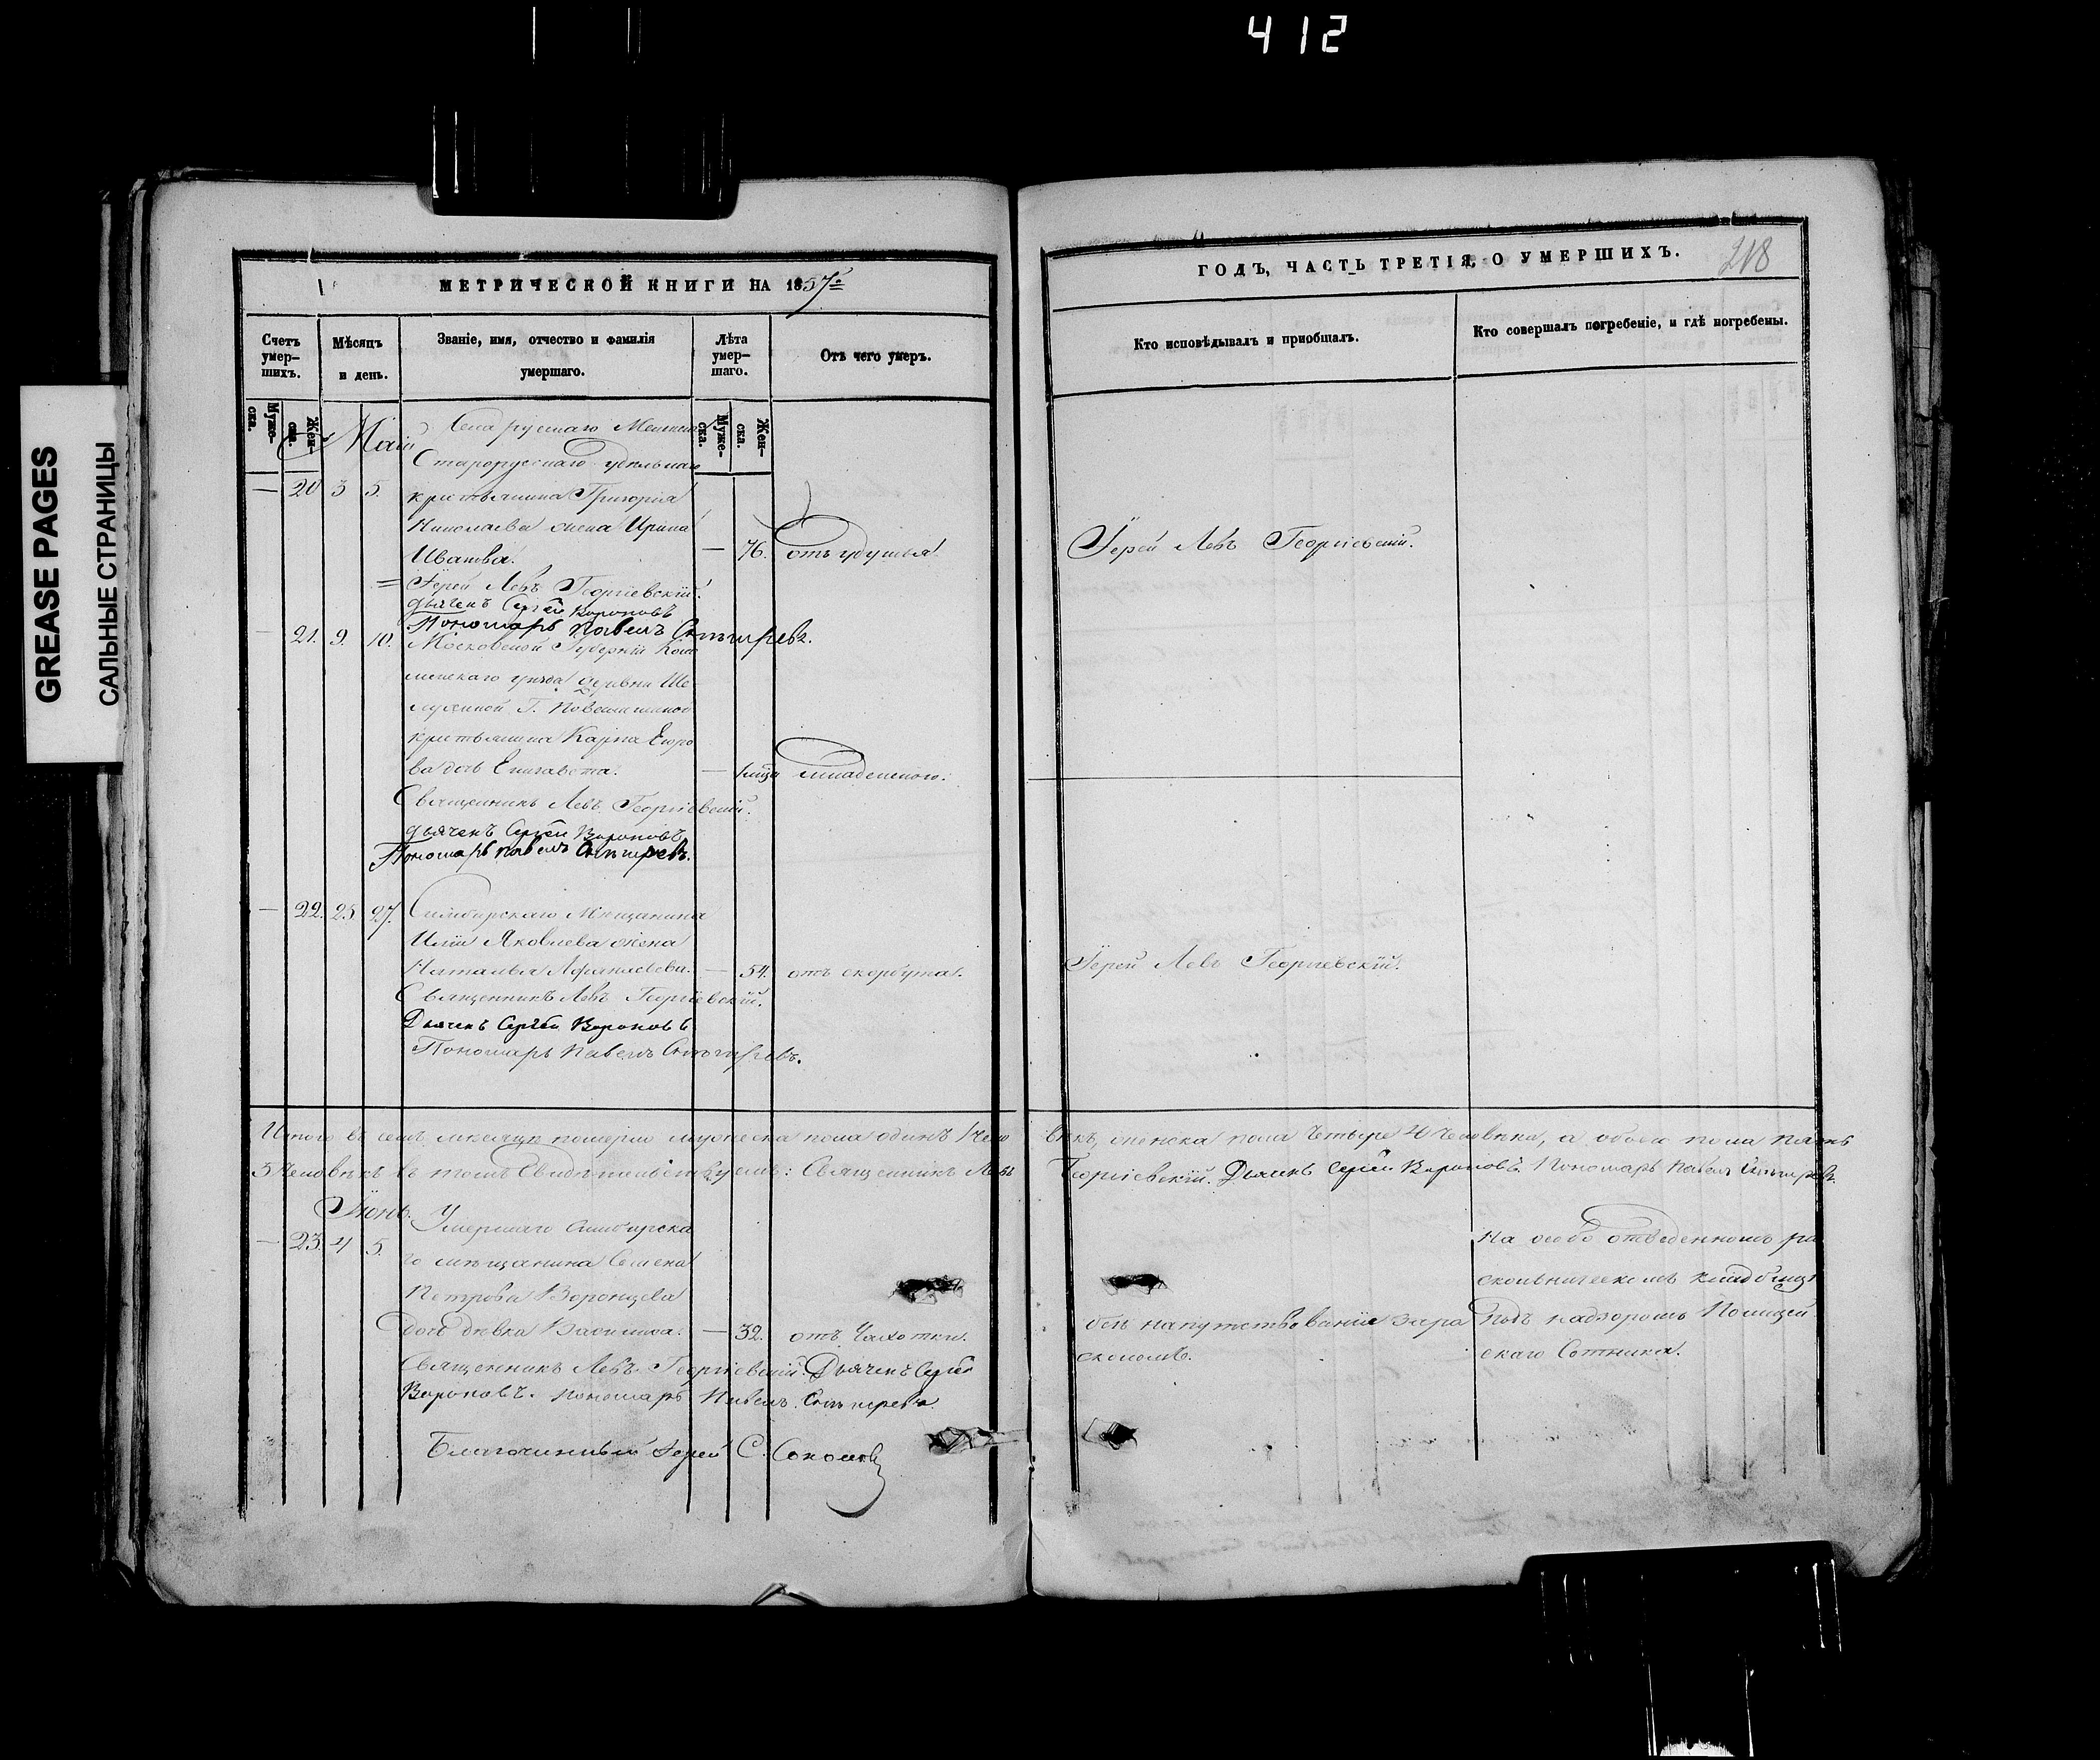 412
GREASE PAGES
САЛЬНЫЕ СТРАНИЦЫ
МЕТРИЧЕСКОЙ КНИГИ НА 1857
Счетъ умер-шихъ.
Мѣсяцъ и день.
Званіе, имя, отчество и фамилія умершаго.
Лѣта умер-шаго.
Отъ чего умеръ.
Муже-ска.
Жен-ска.
Муже-ска.
Жен-ска.
Маій
— 20 3 5.
крестьянина Григорія
Николаева жена Ирина
Иванова. — 76. отъ удушья.
Іерей Левъ Георгіевскій.
дьячекъ Сергѣй Вороновъ
Пономарь Павелъ
— 21. 9. 10. Московской Губерніи Коло
менскаго уѣзда деревни Ше
крестьянина Карпа
ва дочь Елизавета. — младенческаго.
Священникъ Левъ Георгіевскій.
дьячекъ Сергѣй Вороновъ
Пономарь Павелъ
— 22. 25 27. Симбирскаго Мѣщанина
Иліи Яковлева жена
Наталья Афанасьева. — 54. отъ скорбута.
Священникъ Левъ Георгіевскій.
Дьячекъ Сергѣй Вороновъ
Пономарь Павелъ
Итого въ семъ мѣсяцѣ померло мужеска пола одинъ 1 чело
5 человѣкъ въ томъ свидѣтельствуемъ: Священникъ Левъ
Іюнь. Умершаго Симбирска
— 23. 4 5. го мѣщанина Семена
Петрова Воронцева
дочь дѣвка Василиса. — 32. отъ Чахотки.
Священникъ Левъ Георгіевскій. Дьячекъ Сергѣй
Вороновъ. Пономарь Павелъ
Благочинный Іерей С. Соколовъ
ГОДЪ, ЧАСТЬ ТРЕТІЯ, О УМЕРШИХЪ.
218
Кто исповѣдывалъ и приобщалъ.
Кто совершалъ погребеніе, и гдѣ погребены.
Іерей Левъ Георгіевскій.
Іерей Левъ Георгіевскій.
вѣкъ, женска пола четыре 4 человѣка, а обоего пола пять
Георгіевскій. Дьячекъ Сергѣй Вороновъ. Пономарь Павелъ
На особо отведенномъ ра
скольническомъ кладбищѣ
безъ напутствованія за ра
подъ надзоромъ Полицей
сколомъ.
скаго Сотника.